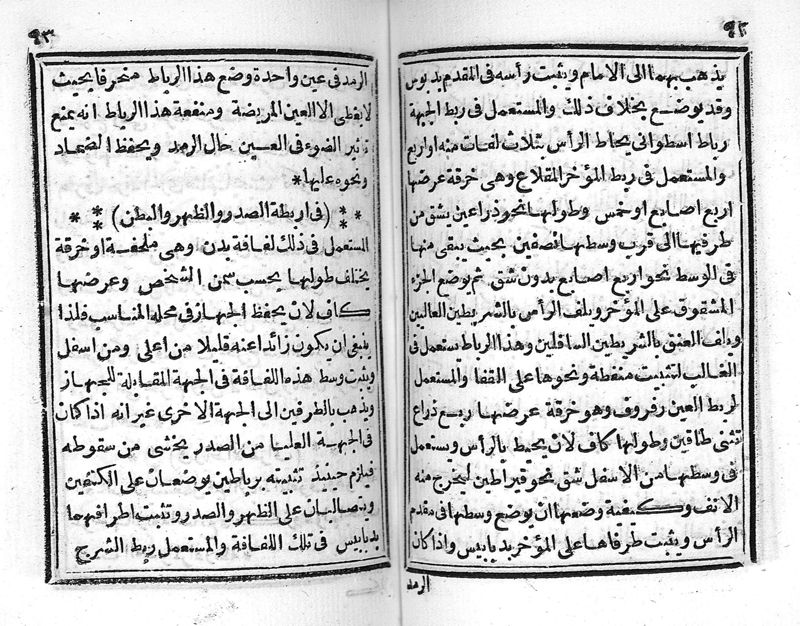 ٩٢
يذهب بهما الى الامام ويثبت رأسه فى المقدم بدبوس
وقد يوضع بخلاف ذلك والمستعمل فى ربط الجبهة
رباط اسطوانى يحاط الرأس بثلاث لفات منه او اربع
والمستعمل فى ربط المؤخر المقلاع وهى خرقة عرضها
اربع اصابع او خمس وطولها نحو ذراعين يشق من
طرفيها الى قرب وسطها نصفين بحيث يبقى منها
فى الوسط نحو اربع اصابع بدون شق ثم يوضع الجزء
المشقوق على المؤخر ويلف الرأس بالشريطين العاليين
ويلف العنق بالشريطين السافلين وهذا الرباط يستعمل فى
الغالب لتثبيت منفطة ونحوها على القفا والمستعمل
لربط العين رفروف وهو خرقة عرضها ربع ذراع
تثنى طاقين وطولها كاف لان يحيط بالرأس ويستعمل
فى وسطها من الاسفل شق نحو قيراطين ليخرج منه
الانف وكيفية وضعها ان يوضع وسطها فى مقدم
الرأس ويثبت طرفاها على المؤخر بدبابيس واذا كان
الرمد
٩٣
الرمد فى عين واحدة وضع هذا الرباط منحرفا بحيث
لا يغطى الا العين المريضة ومنفعة هذا الرباط انه يمنع
تاثير الضوء فى العين حال الرمد ويحفظ الضماد
ونحوه عليها *
* * * (فى اربطة الصدر والظهر والبطن) * * *
المستعمل فى ذلك لفافة بدن وهى ملحفة او خرقة
يختلف طولها بحسب سمن الشخص وعرضها
كاف لان يحفظ الجهاز فى محله المناسب فلذا
ينبغى ان يكون زائدا عنه قليلا من اعلى ومن اسفل
ويثبت وسط هذه اللفافة فى الجهة المقابلة للجهاز
ويذهب بالطرفين الى الجهة الاخرى غير انه اذا كان
فى الجهة العليا من الصدر يخشى من سقوطه
فيلزم حينئذ تثبيته برباطين يوضعان على الكتفين
ويتصالبان على الظهر والصدر وتثبت اطرافهما
بدبابيس فى تلك اللفافة والمستعمل لربط الشرج